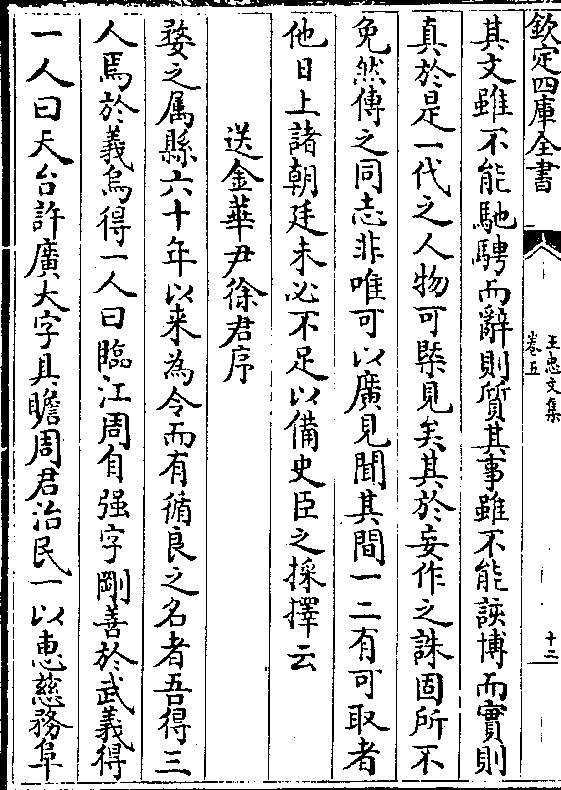 欽定四庫全書
王忠文集
卷五
十二
其文雖不能馳騁而辭則質其事雖不能該博而實則
真於是一代之人物可槩見矣其於妄作之誅固所不
免然傳之同志非唯可以廣見聞其間一二有可取者
他日上諸朝廷未必不足以備史臣之採擇云
送金華尹徐君序
婺之属縣六十年以来為令而有循良之名者吾得三
人焉於義烏得一人曰臨江周自强字剛善於武義得
一人曰天台許廣大字具瞻周君治民一以惠慈務阜